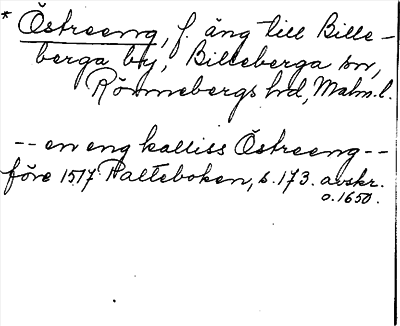 * Östreeng, f. äng till Bille-
berga by, Billeberga sn,
Rönnebergs hd, Malm. l.
-- en eng kalliss Östreeng --
före 1517 Palteboken, s. 173. avskr.
o. 1650.